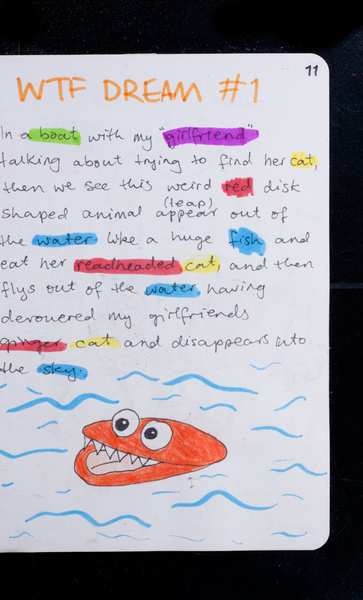 11
WTF DREAM #1
In a boat with my "girlfriend"
talking about trying to find her cat,
then we see this weird red disk
(leap)
shaped animal appear out of
the water like a huge fish and
eat her readheaded cat, and then
flys out of the water having
devoured my girlfriends
ginger cat and disappears into
the sky.